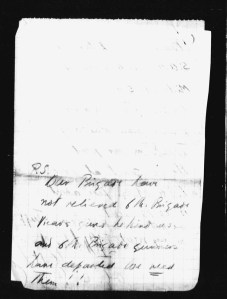 P.S.
Our Brigade have
not relieved 6th Brigade
Vicars guns behind us
and 6th Brigade gunners
have departed. We need
them